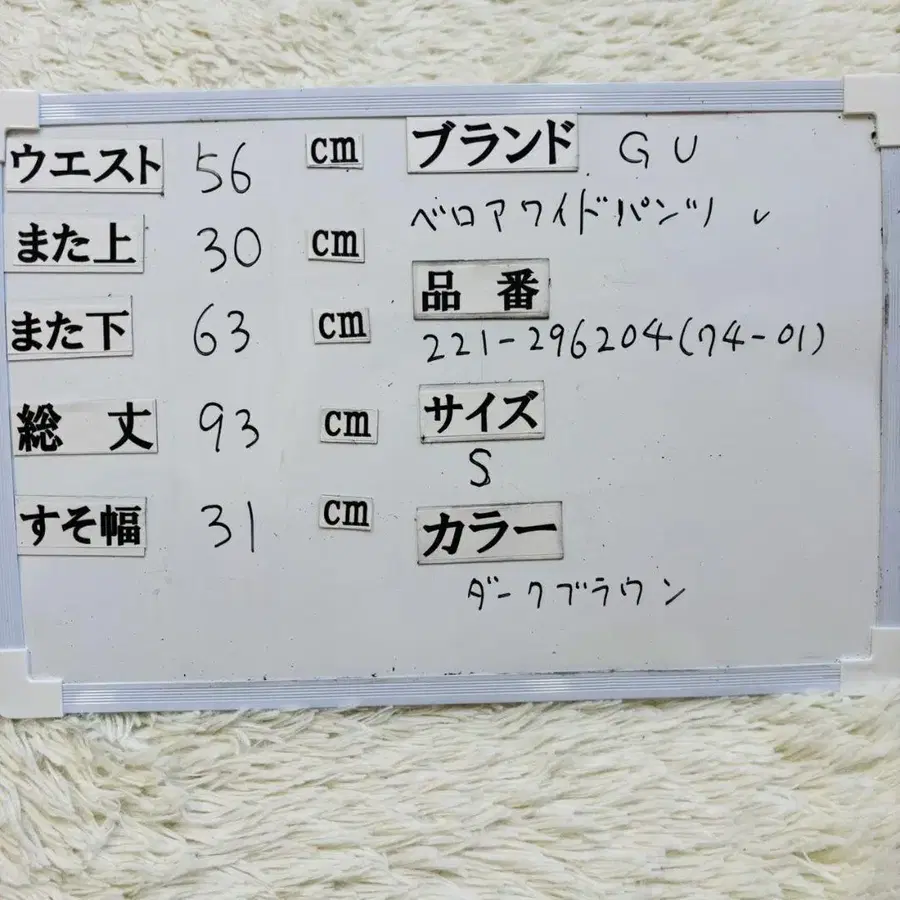 ウエスト 56 cm
また上 30 cm
また下 63 cm
総丈 93 cm
すそ幅 31 cm
ブランド GU
ベロアワイドパンツ
品番
221-296204(74-01)
サイズ
S
カラー
ダークブラウン